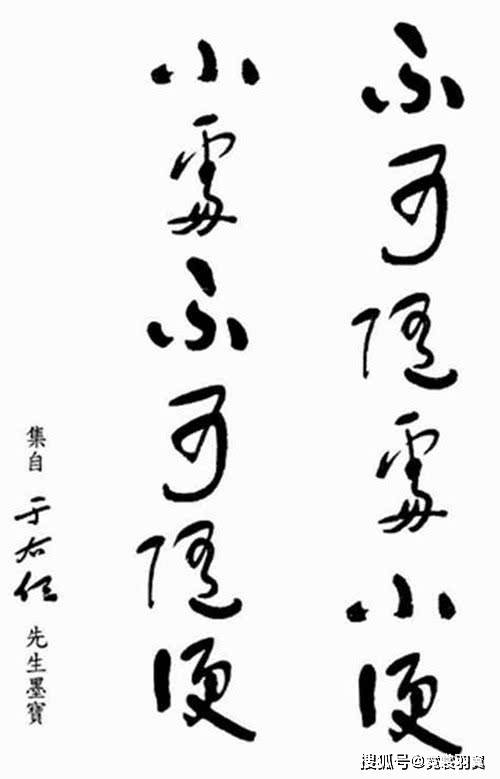 不可隨處小便
小處不可隨便
集自于右任先生墨寶
搜狐号@霓裳羽翼